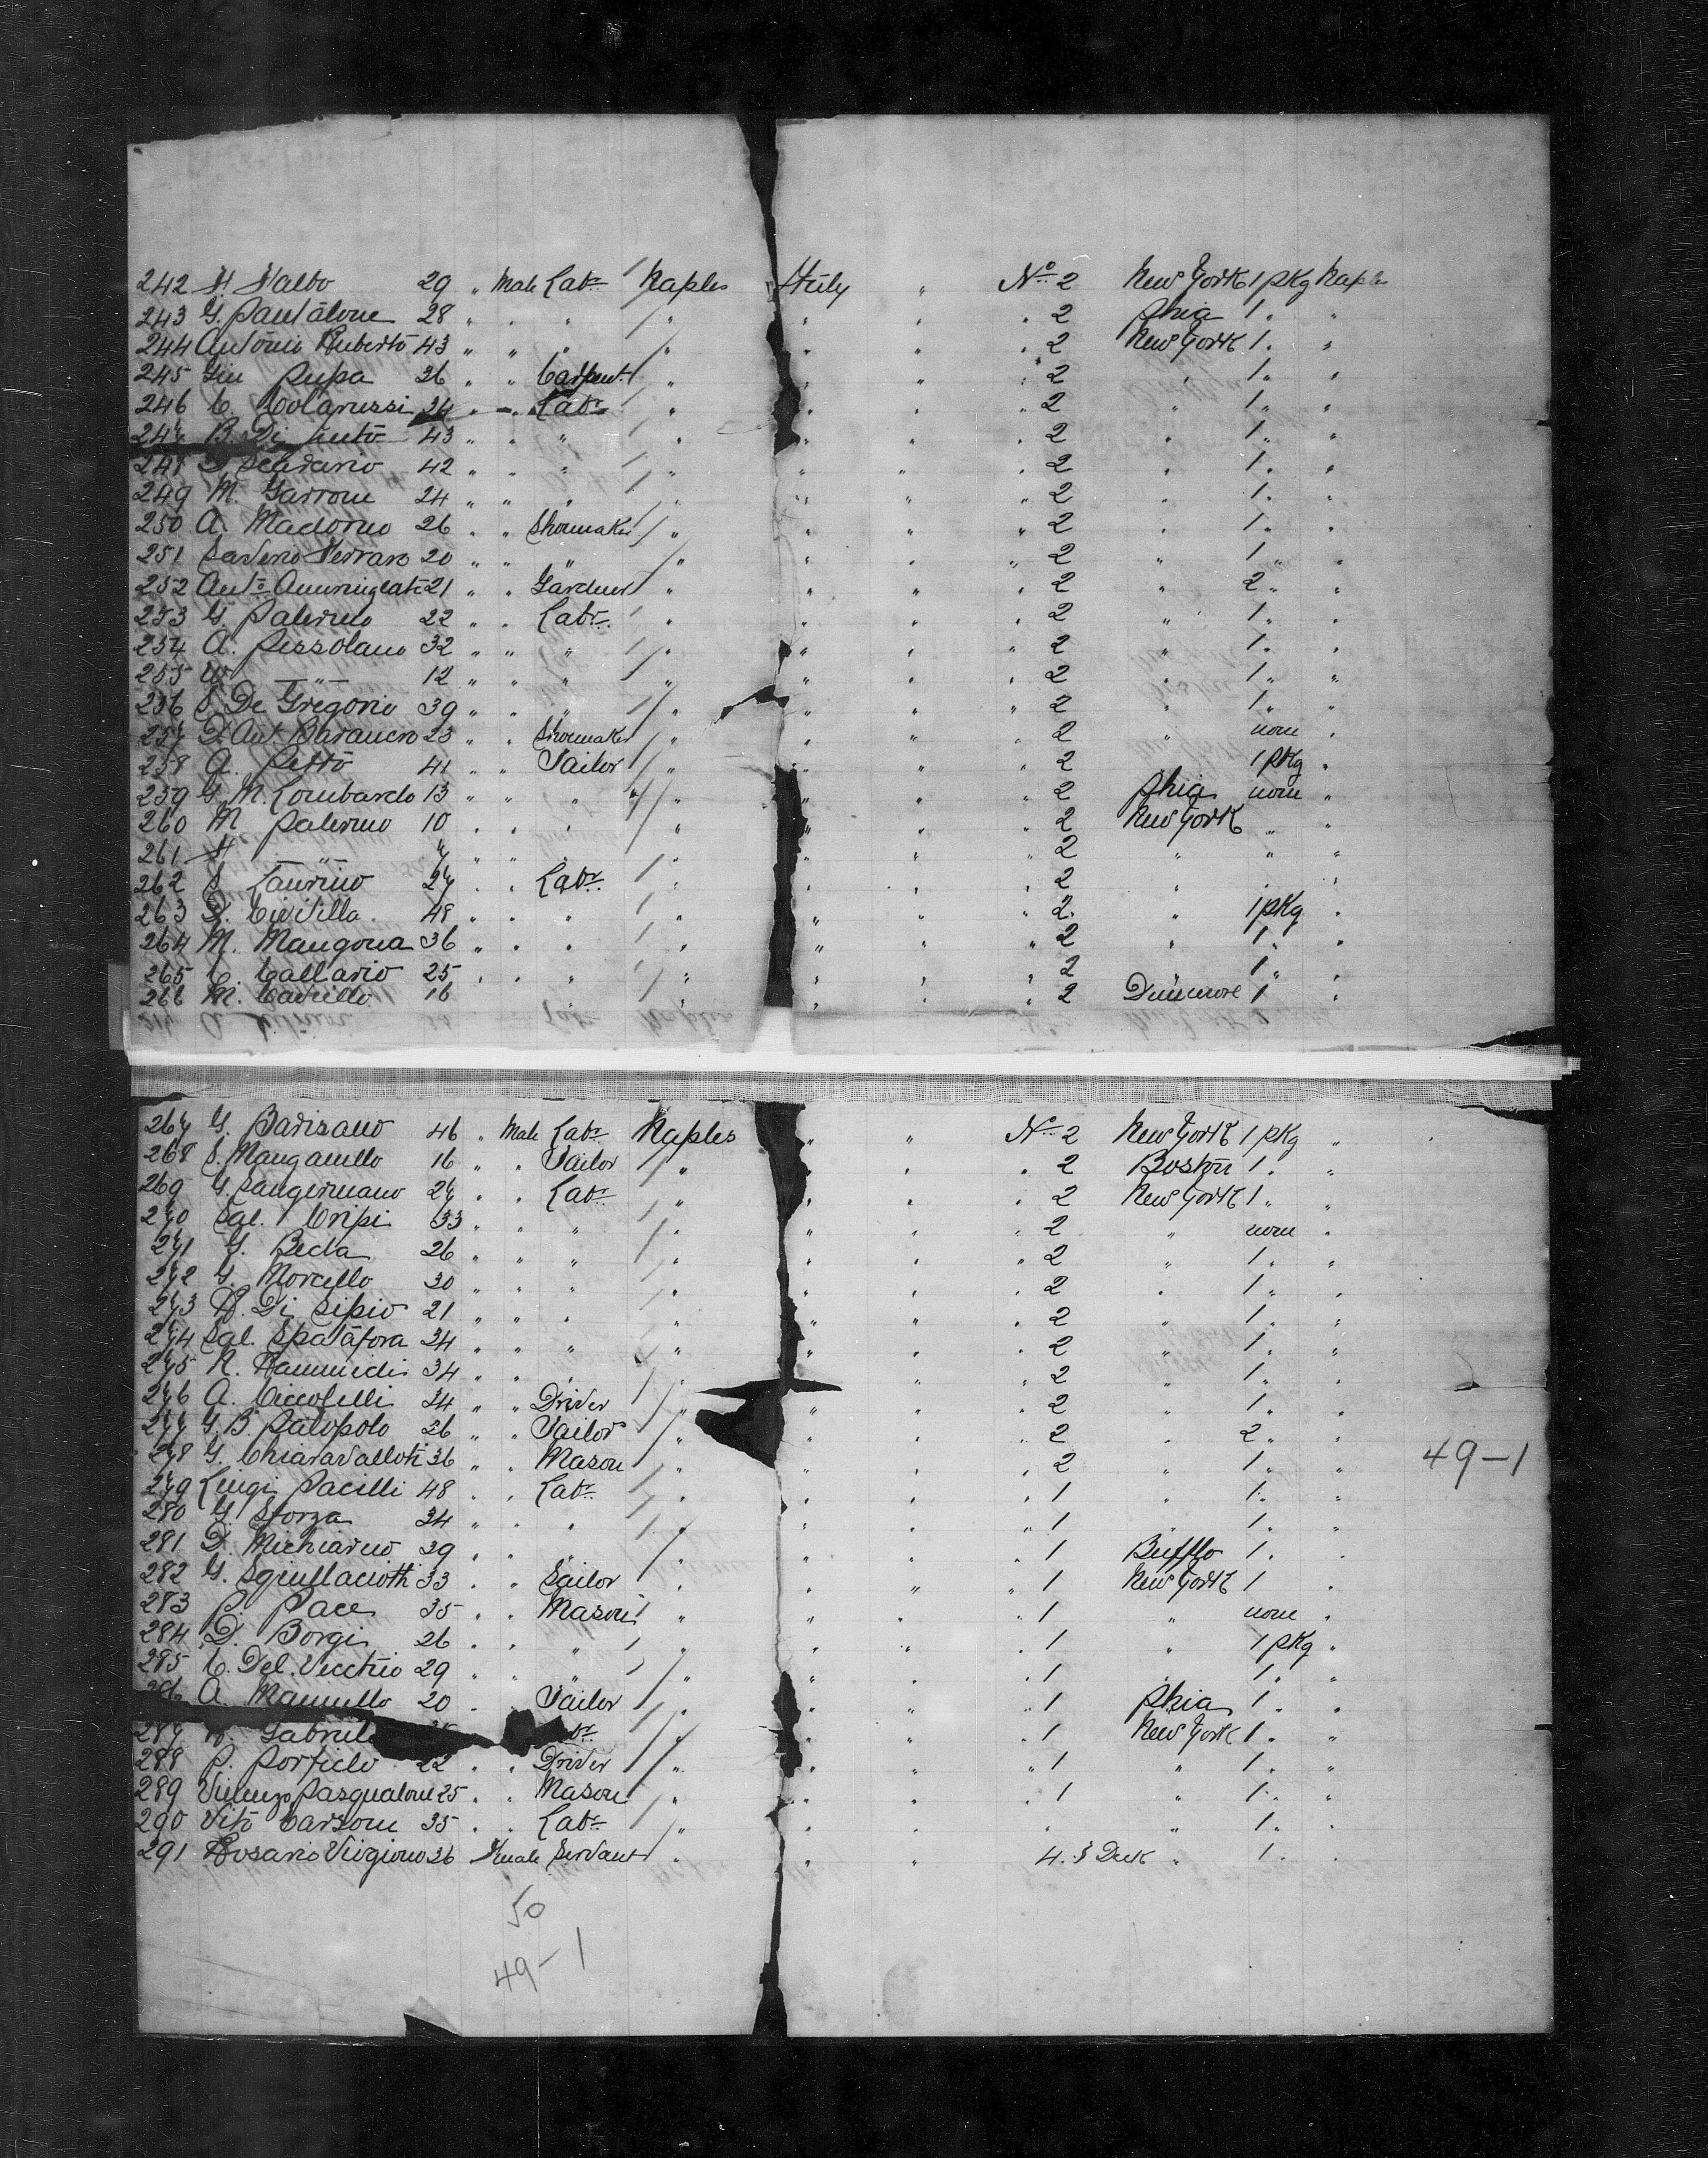 242 F. Falbo 29 " Male Labr / Naples Italy " No 2 New York 1 pkg Naples
243 G. Pantalone 28 " " " / " " " " 2 Phia 1 " "
244 Antonio Ruberto 43 " " " / " " " " 2 New York 1 " "
245 Giu Pupa 36 " " Carpent. / " " " " 2 " 1 " "
246 C. Colarussi 34 " " Labr / " " " " 2 " 1 " "
247 B. Di 43 " " " / " " " " 2 " 1 " "
248 42 " " " / " " " " 2 " 1 " "
249 M. Garrone 24 " " " / " " " " 2 " 1 " "
250 A. Madorno 26 " " Shoemaker / " " " " 2 " 1 " "
251 Saverio Ferraro 20 " " " / " " " " 2 " 1 " "
252 Anto 21 " " Gardner / " " " " 2 " 2 " "
253 G. Palermo 22 " " Labr / " " " " 2 " 1 " "
254 A. Pessolano 32 " " " / " " " " 2 " 1 " "
255 W —"— 12 " " " / " " " " 2 " 1 " "
256 S. De Gregorio 39 " " " / " " " " 2 " 1 " "
257 D. Ant. 23 " " Shoemaker / " " " " 2 " none "
258 A. Petto 41 " " Tailor / " " " " 2 " 1 pkg "
259 G. M. Lombardo 13 " " " / " " " " 2 Phia none "
260 M Palermo 10 " " " / " " " " 2 New York " "
261 F —"— 7 " " " / " " " " 2 " " "
262 S. Laurino 27 " " Labr / " " " " 2 " " "
263 D. Civitella 48 " " " / " " " " 2 " 1 pkg "
264 M. Mangona 36 " " " / " " " " 2 " 1 " "
265 C. Callario 25 " " " / " " " " 2 " 1 " "
266 M. Carillo 16 / " " " " 2 Dunmore 1 "
267 G. Barisano 46 " Male Labr Naples " " No 2 New York 1 pkg "
268 S. Manganello 16 " " Tailor / " " " " 2 Boston 1 " "
269 G. Sangermano 27 " " Labr / " " " " 2 New York 1 " "
270 Sal. Cripi 33 " " " / " " " " 2 " none "
271 G. Becla 26 " " " / " " " " 2 " 1 " "
272 G. Morcello 30 " " " / " " " " 2 " 1 " "
273 Di Sipio 21 " " " / " " " " 2 " 1 " "
274 Sal. Spatafora 34 " " " / " " " " 2 " 1 " "
275 R. 34 " " " / " " " " 2 " 1 " "
276 A. Ciccolelli 34 " " Driver / " " " " 2 " 1 " "
277 G. B. Palopolo 26 " " Tailor / " " " " 2 " 2 " "
278 G. Chiaravalloti 36 " " Mason / " " " " 2 " 1 " "
49-1
279 Luigi Pacilli 48 " " Labr / " " " " 1 " 1 " "
280 G. Sforza 34 " " " / " " " " 1 " 1 " "
281 D. Michiarno 39 " " " / " " " " 1 Bufflo 1 " "
282 G. 33 " " Sailor / " " " " 1 New York 1 "
283 P. Pace 35 " " Mason / " " " " 1 " none "
284 D. Borgi 26 " " " / " " " " 1 " 1 pkg "
285 C. Del Vecchio 29 " " " / " " " " 1 " 1 " "
286 A. Mannello 20 " " Tailor / " " " " 1 Phia 1 " "
287 Gabriele / " " " " 1 New York 1 " "
288 P. Porficlo 22 " " Driver / " " " " 1 " 1 " "
289 Vincenzo Pasqualone 25 " " Mason / " " " " 1 " 1 " "
290 Vito Carzone 35 " " Labr / " " " " " 1 " "
291 Rosario Virgiono 26 Female Servant / " " " 4.3 Deck " 1 " "
50
49-1